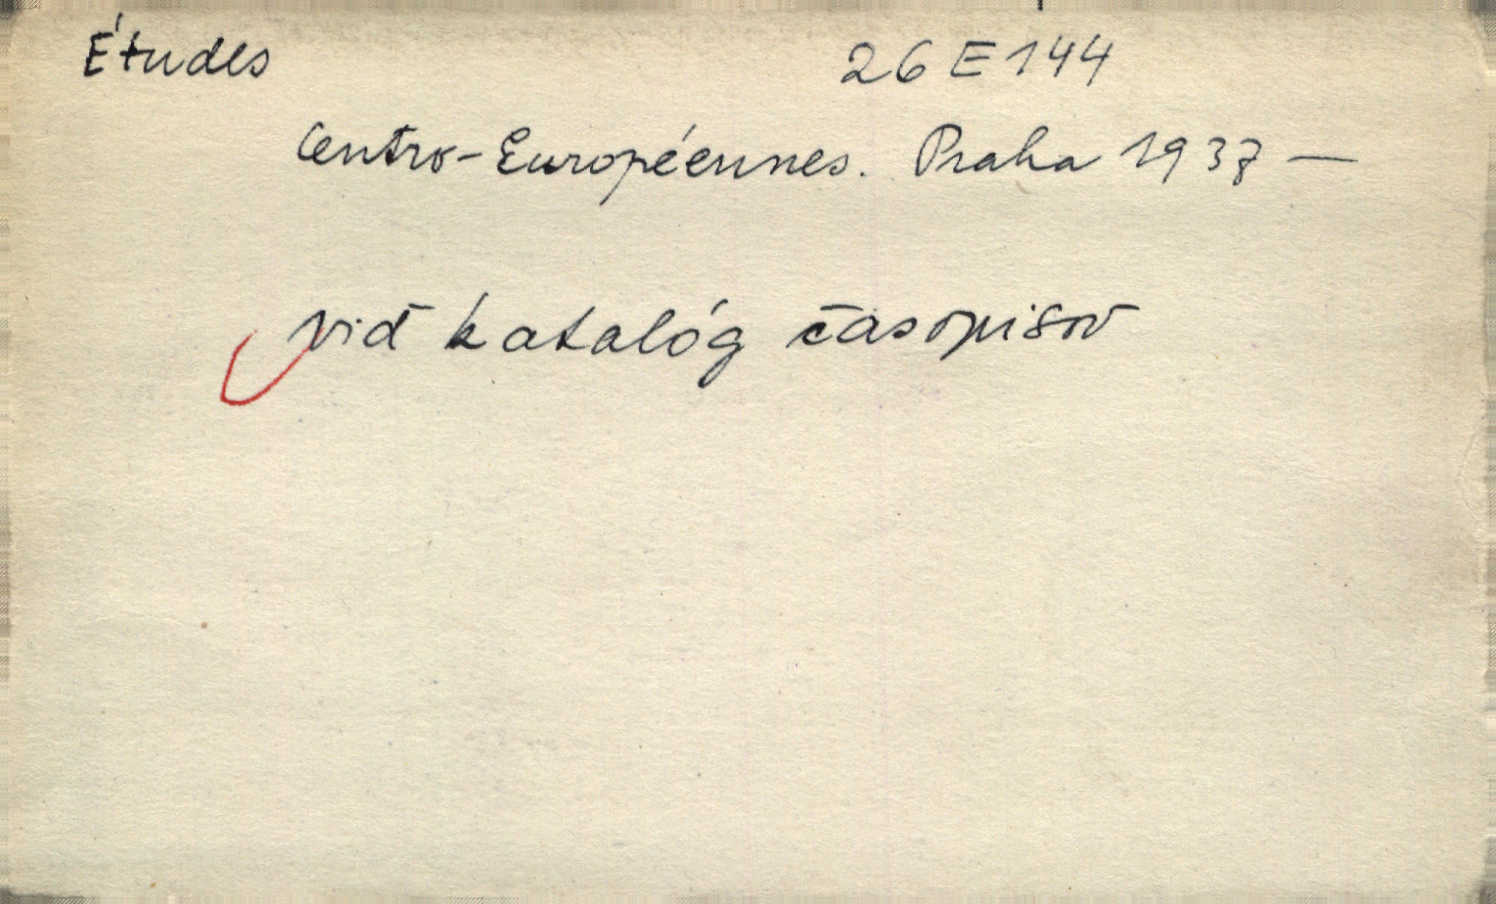 Études 26 E 144
Centro-Européennes. Praha 1937 —
viď katalóg časopisov